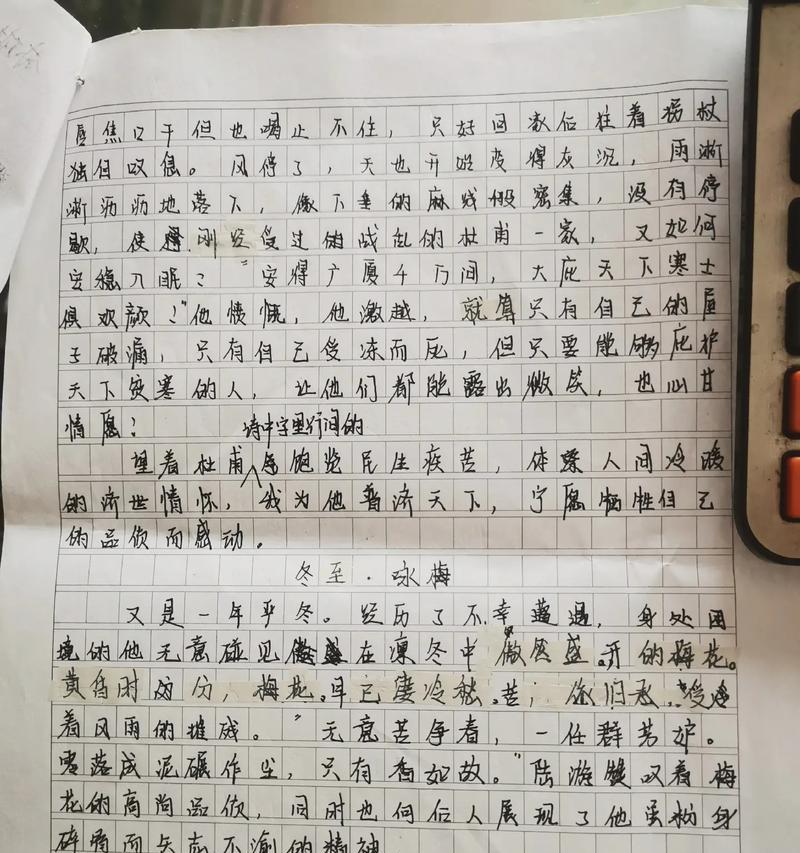 唇焦口干但也喝止不住，只好回家后拄着拐杖
独自叹息。风停了，天也开始变得灰沉，雨淅
淅沥沥地落下，像下垂的麻线般密集，没有停
歇，使得刚经受过的战乱的杜甫一家，又如何
安稳入眠？“安得广厦千万间，大庇天下寒士
俱欢颜！”他愤慨，他激越，就算只有自己的屋
子破漏，只有自己受冻而死，但只要能够庇护
天下贫寒的人，让他们都能露出微笑，也心甘
情愿！
诗中字里行间的
望着杜甫饱览民生疾苦，体察人间冷暖
的济世情怀，我为他普济天下，宁愿牺牲自己
的品质而感动。
冬至·咏梅
又是一年乎冬。经历了不幸遭遇，身处困
境的他无意碰见在凛冬中傲然盛开的梅花。
黄昏时分，梅花早已凄冷愁苦，你归来，受
着风雨的摧残。“无意苦争春，一任群芳妒。
零落成泥碾作尘，只有香如故。”陆游赞叹着梅
花的高尚品质，同时也向后人展现了他虽粉身
碎骨而矢志不渝的精神